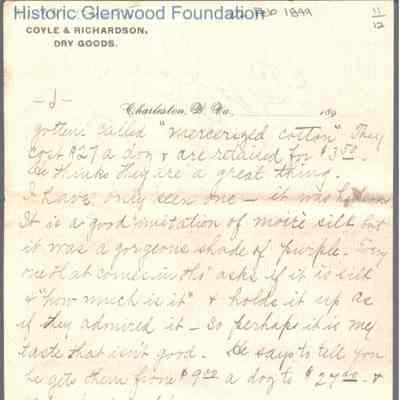 Historic Glenwood Foundation
Feb 1899
11/12
COYLE & RICHARDSON,
DRY GOODS.
-J-
Charleston, W. Va. 189
gotten called "mercerized cotton" They
cost $27 a doz & are retailed for $3.50.
He thinks they are a great thing.
I have only seen one - it was
It is a good imitation of moire silk but
it was a gorgeous shade of purple. Every
one that comes in tho' asks if it is silk
& "how much is it" & holds it up as
if they admired it - So perhaps it is my
taste that isn't good. He says to tell you
he gets them from $9.00 a doz to $27.00. &